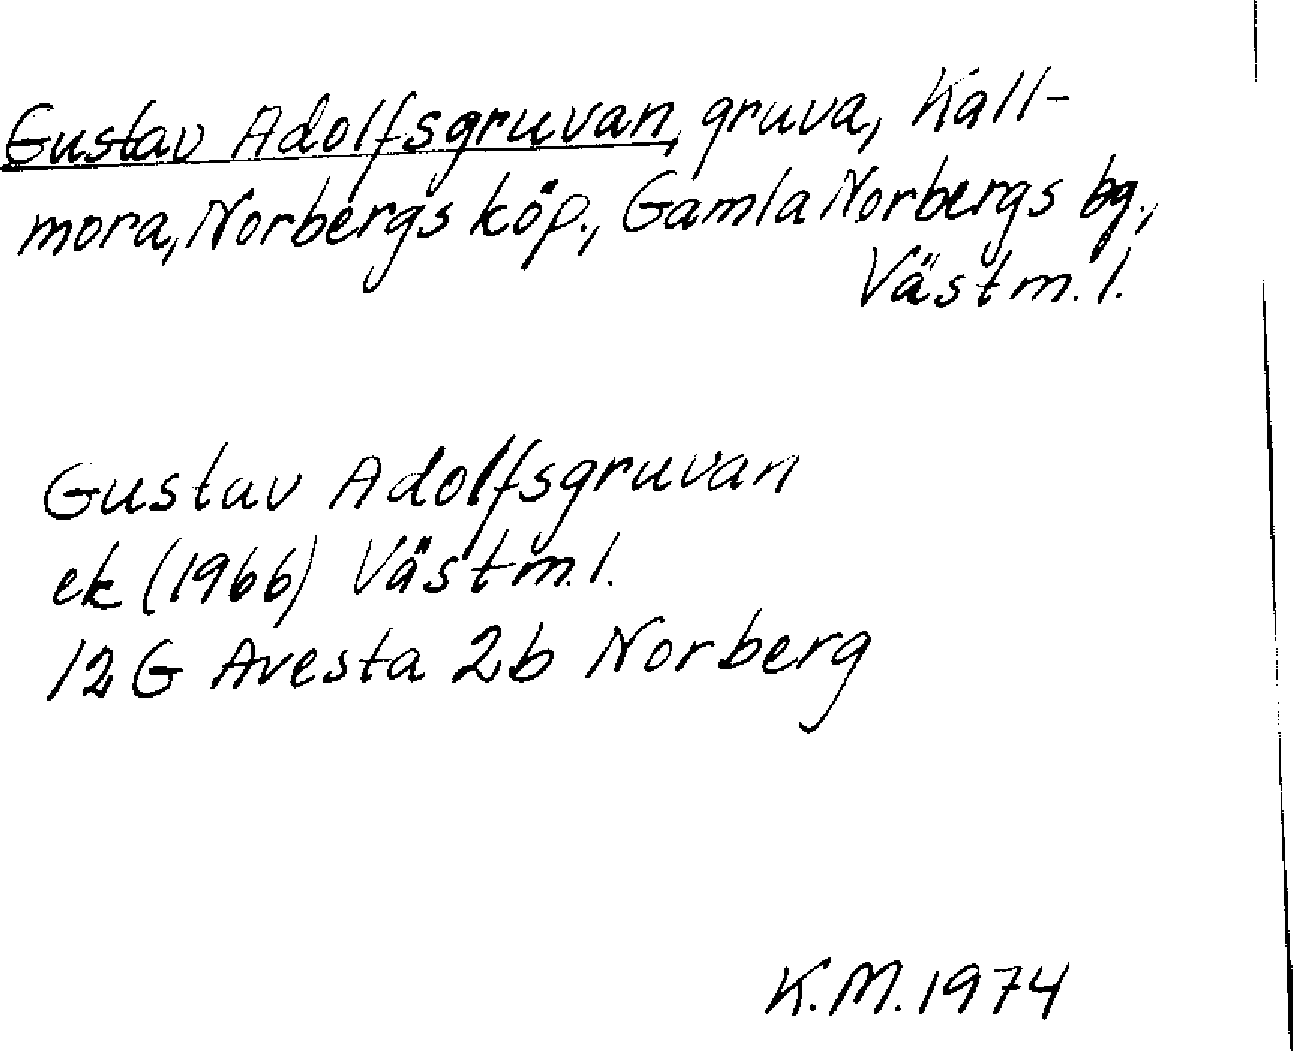 Gustav Adolfsgruvan, gruva, Kall-
mora, Norbergs köp., Gamla Norbergs bg.,
Västm. l.
Gustav Adolfsgruvan
ek (1966) Västm. l.
12 G Avesta 2b Norberg
K.M. 1974